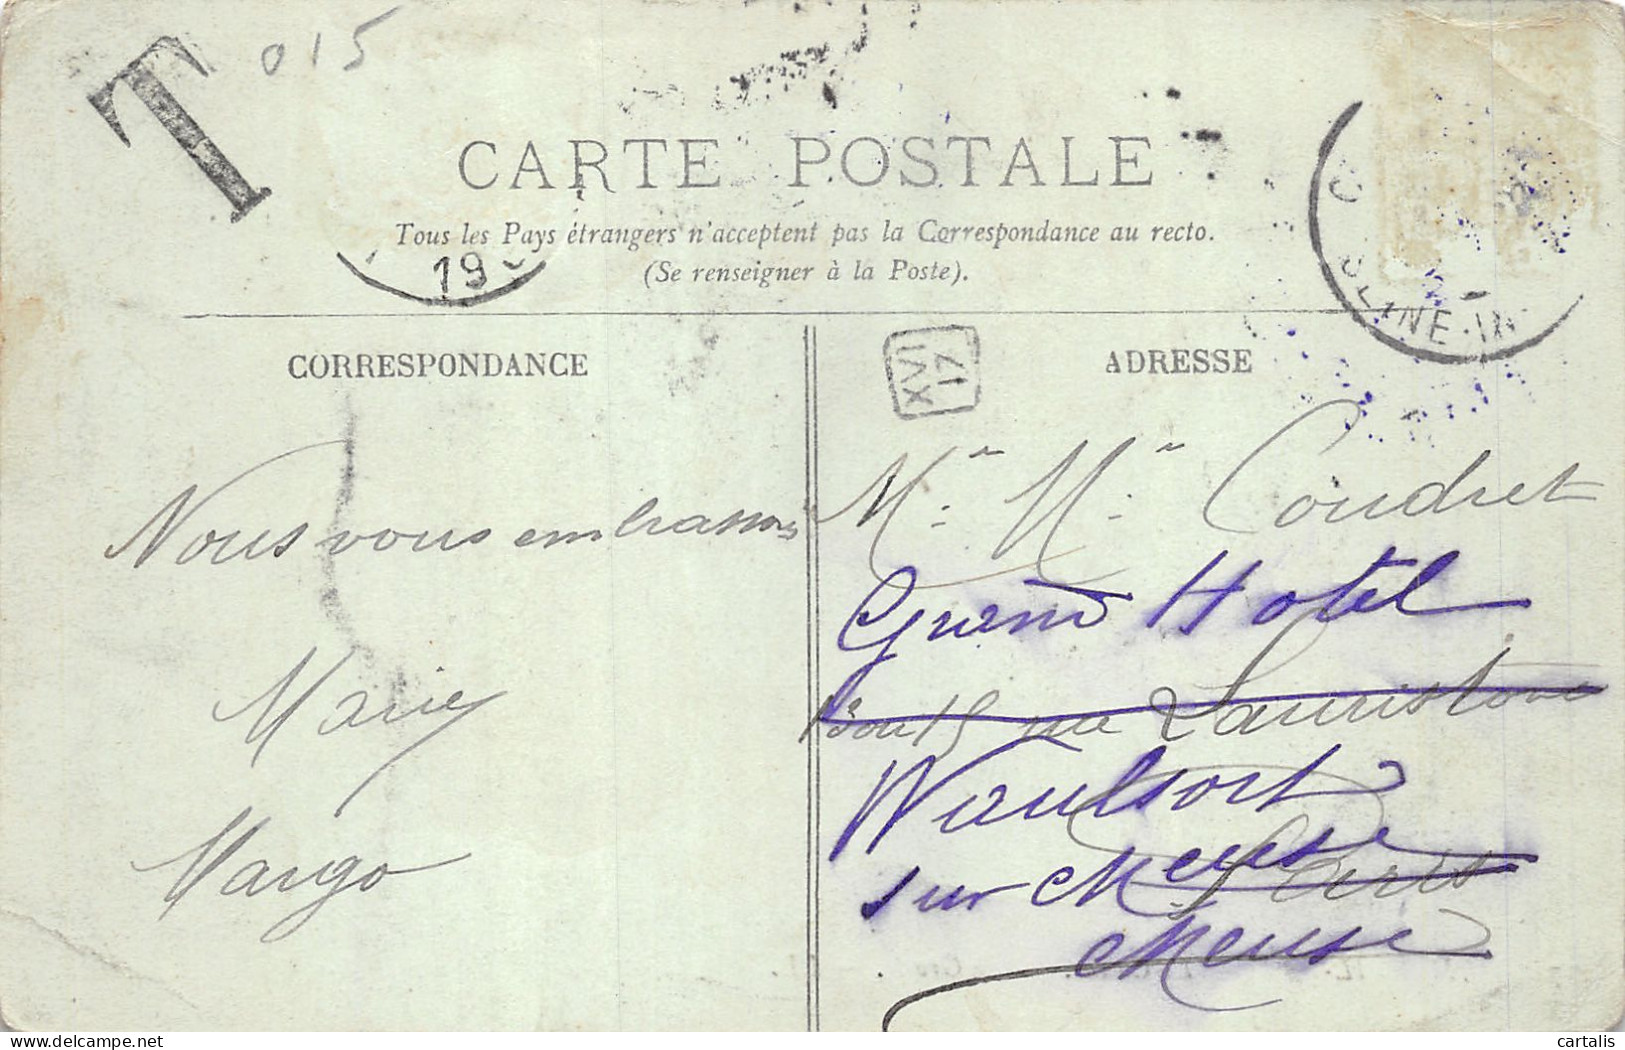 T
015
CARTE POSTALE
Tous les Pays étrangers n'acceptent pas la Correspondance au recto.
(Se renseigner à la Poste).
19
SEINE-IN
CORRESPONDANCE
ADRESSE
17
XVI
Nous vous embrassons
Marie
Margo
Mr. Mr. Coudret
Grand Hotel
13 ou 15 rue Lauristone
Waulsort
Paris
sur Meuse
Meuse
cartalis
delcampe.net